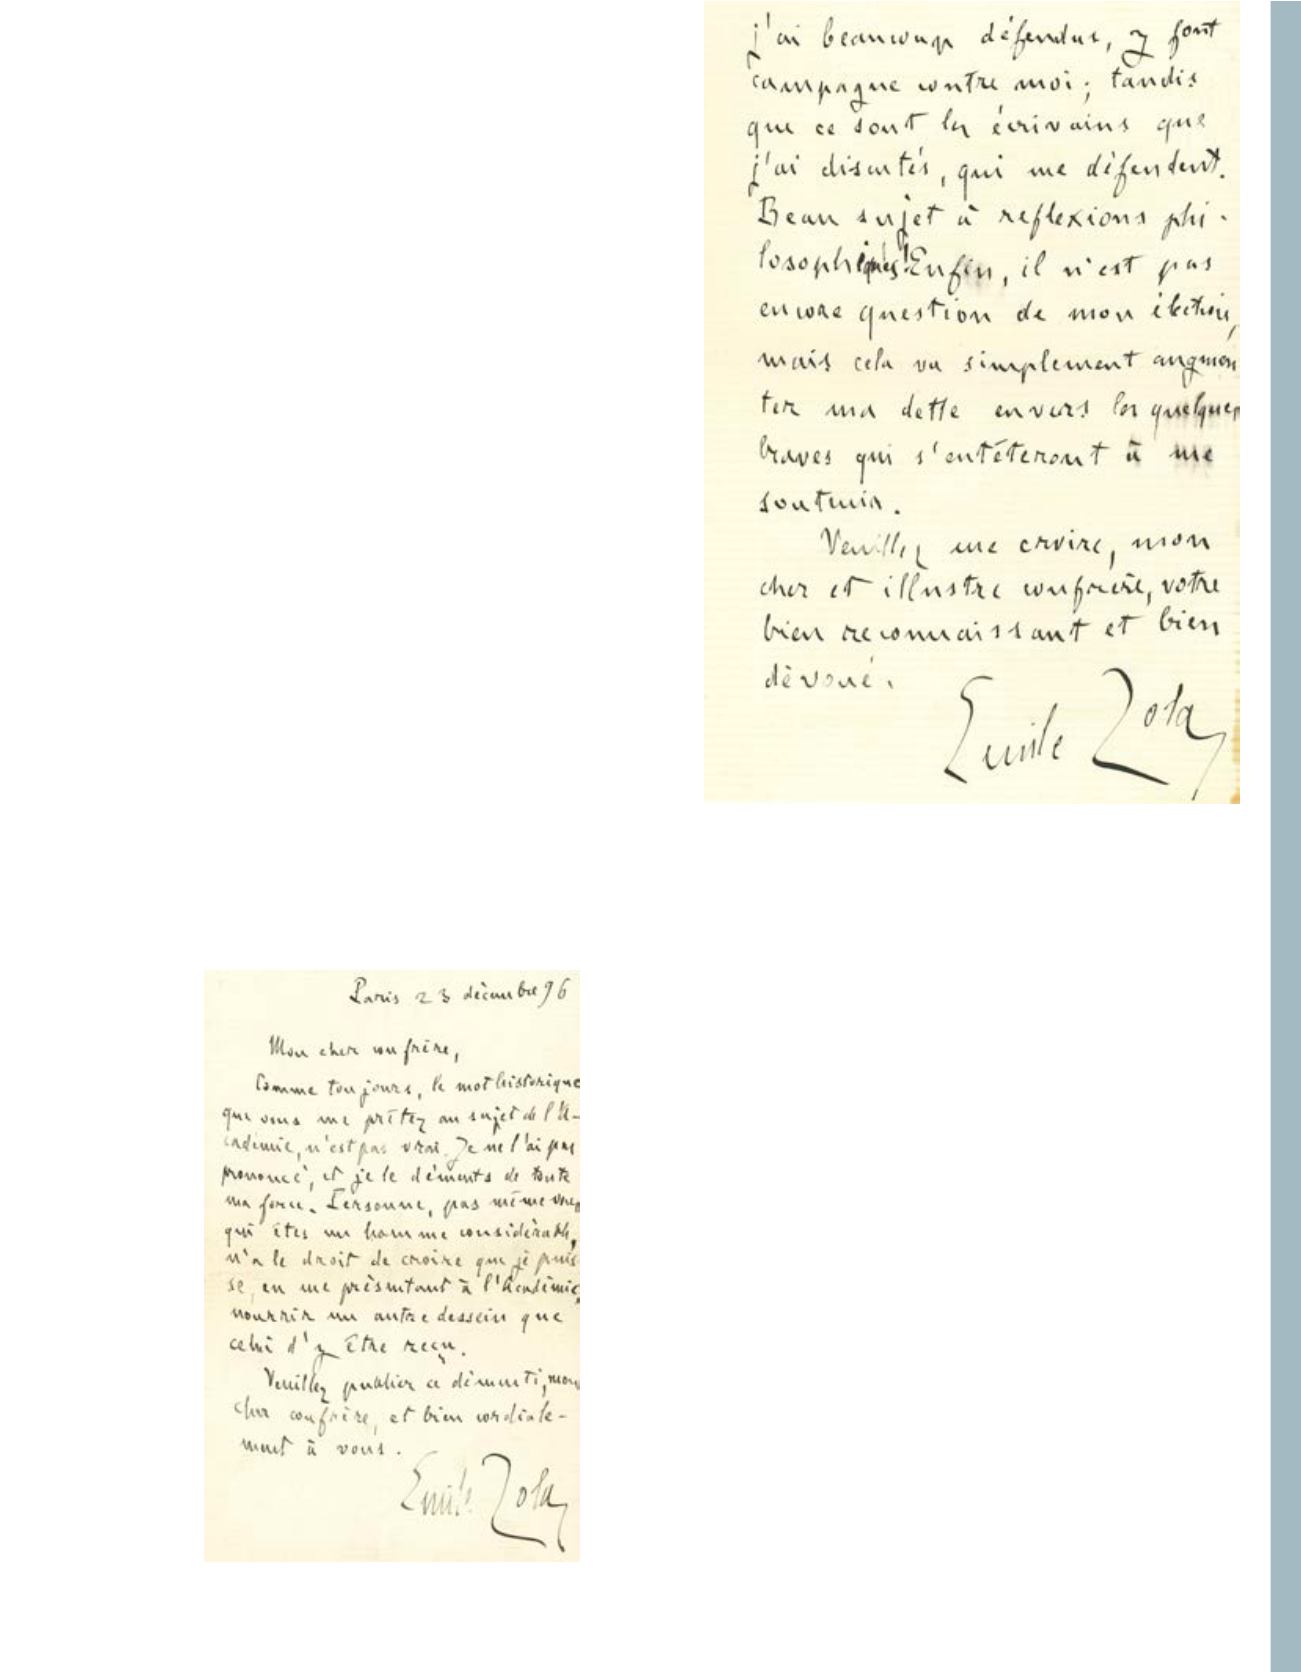 j'ai beaucoup défendus, y font
campagne contre moi; tandis
que ce sont les écrivains que
j'ai discutés, qui me défendent.
Beau sujet à reflexions phi-
losophiques! Enfin, il n'est pas
encore question de mon élection,
mais cela va simplement augmen
ter ma dette envers les quelques
braves qui s'entêteront à me
soutenir.
Veuillez me croire, mon
cher et illustre confrère, votre
bien reconnaissant et bien
dévoué.
Emile Zola
Paris 23 décembre 96
Mon cher confrère,
Comme toujours, le mot historique
que vous me prêtez au sujet de l'A-
cadémie, n'est pas vrai. Je ne l'ai pas
prononcé, et je le déments de toute
ma force. Personne, pas même vous
qui êtes un homme considérable,
n'a le droit de croire que je puis-
se, en me présentant à l'Académie,
nourrir un autre dessein que
celui d'y être reçu.
Veuillez publier ce démenti, mon
cher confrère, et bien cordiale-
ment à vous.
Emile Zola